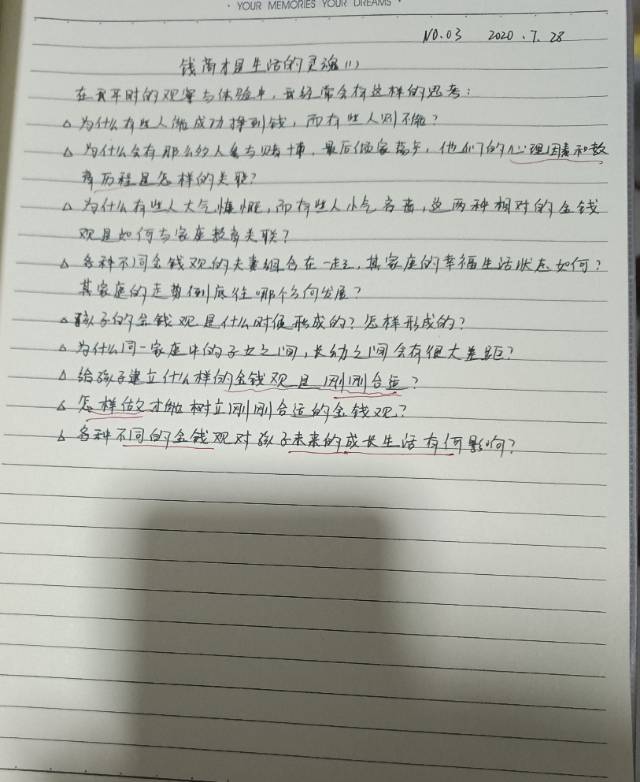 · YOUR MEMORIES YOUR DREAMS ·
NO.03 2020.7.28
钱商才是生活的灵魂(1)
在我平时的观察与体验中，我经常会有这样的思考：
△为什么有些人能成功挣到钱，而有些人则不能？
△为什么会有那么多人参与赌博，最后倾家荡产，他们的心理因素和教
育历程是怎样的关联？
△为什么有些人大气慷慨，而有些人小气吝啬，这两种相对的金钱
观是如何与家庭教育关联？
△各种不同金钱观的夫妻组合在一起，其家庭的幸福生活状态如何？
其家庭的走势到底往哪个方向发展？
△孩子的金钱观是什么时候形成的？怎样形成的？
△为什么同一家庭中的子女之间，长幼之间会有很大差距？
△给孩子建立什么样的金钱观是刚刚合适？
△怎样做才能树立刚刚合适的金钱观？
△各种不同的金钱观对孩子未来的成长生活有何影响？